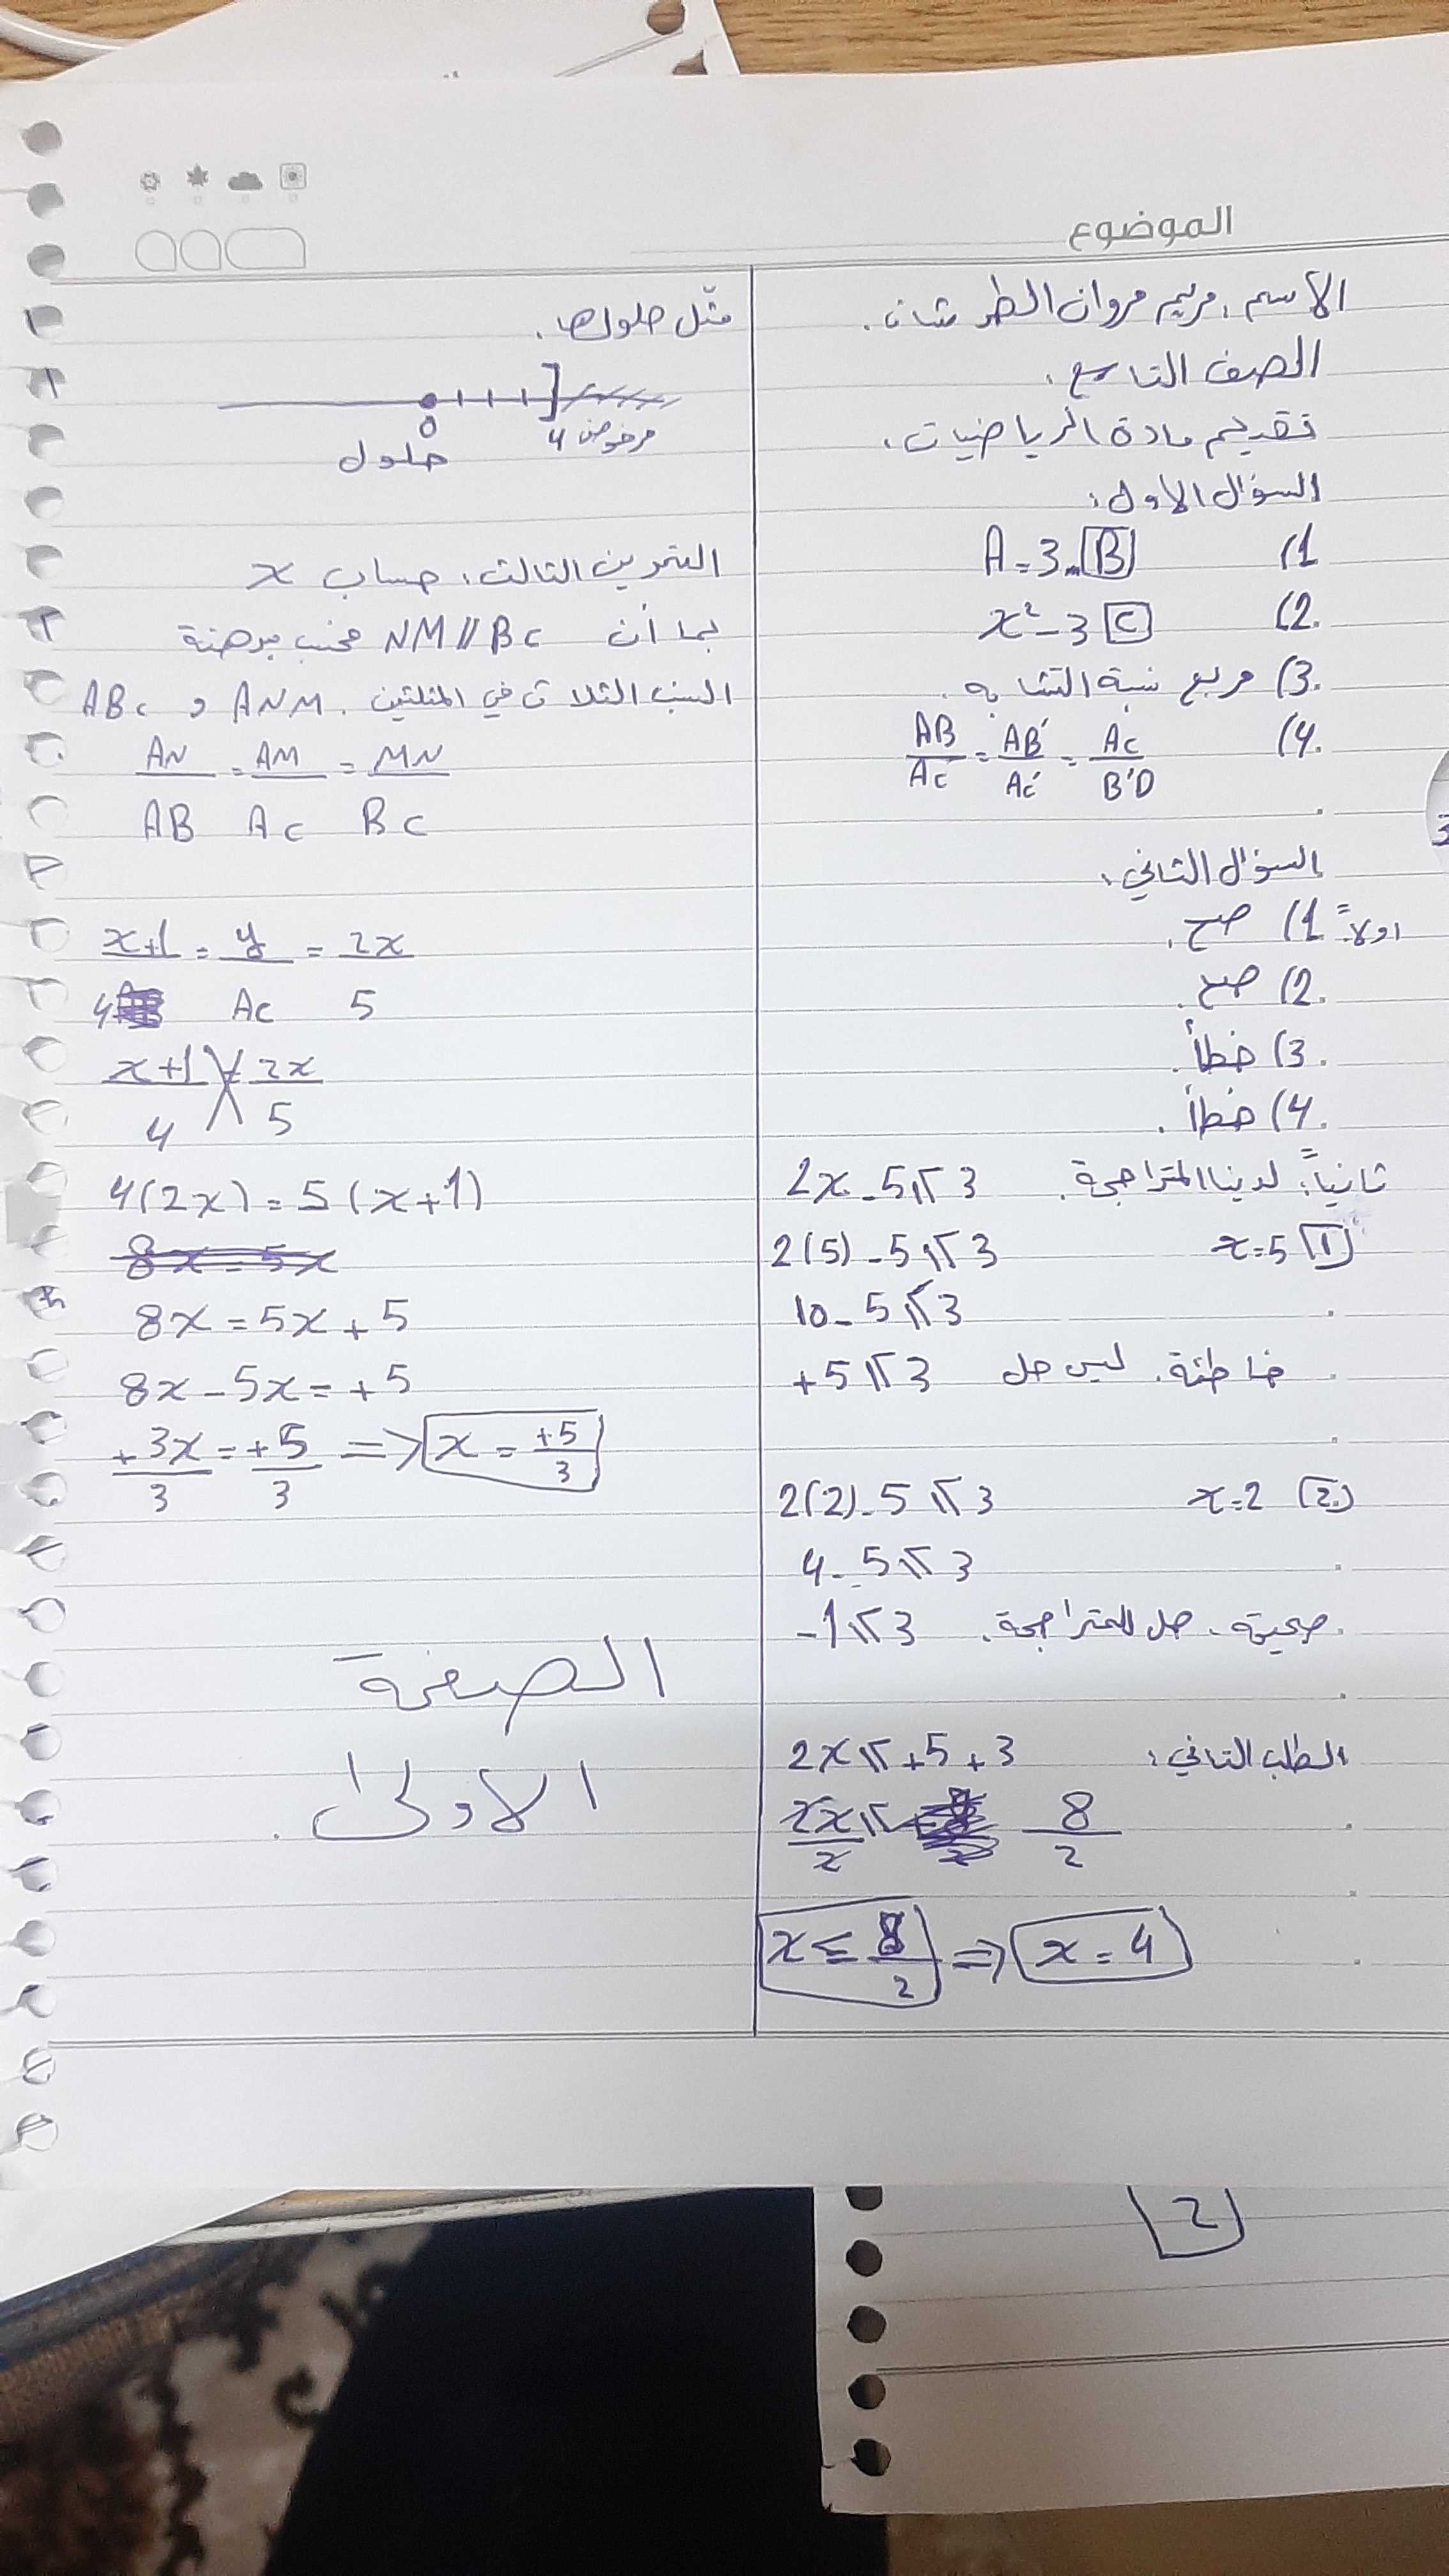 الموضوع
الاسم: مريم مروان الطرشان.
الصف التاسع.
تقديم مادة الرياضيات.
السؤال الاول:
1) A = 3 B
2) x² - 3 C
3) مربع نسبة التشابه.
4) AB/AC = AB'/AC' = AC/B'D
السؤال الثاني:
اولاً: 1) صح.
2) صح.
3) خطأ.
4) خطأ.
ثانياً: لدينا المتراجحة. 2x - 5 ≤ 3
1 x = 5 2(5) - 5 ≤ 3
10 - 5 ≤ 3
+5 ≤ 3 خاطئة. ليس حل
2 x = 2 2(2) - 5 ≤ 3
4 - 5 ≤ 3
-1 ≤ 3 صحيحة. حل للمتراجحة.
الطلب الثاني: 2x ≤ +5 + 3
2x/2 ≤ 8/2
x ≤ 8/2 => x = 4
مثّل حلولها.
0 4 مرفوض
حلول
التمرين الثالث: حساب x
بما أن NM // BC فحسب مبرهنة
النسب الثلاث في المثلثين. ANM و ABC
AN/AB = AM/AC = MN/BC
x+1/4 = y/AC = 2x/5
x+1/4 = 2x/5
4(2x) = 5(x+1)
8x = 5x
8x = 5x + 5
8x - 5x = +5
+3x/3 = +5/3 => x = +5/3
الصفحة
الاولى.
2